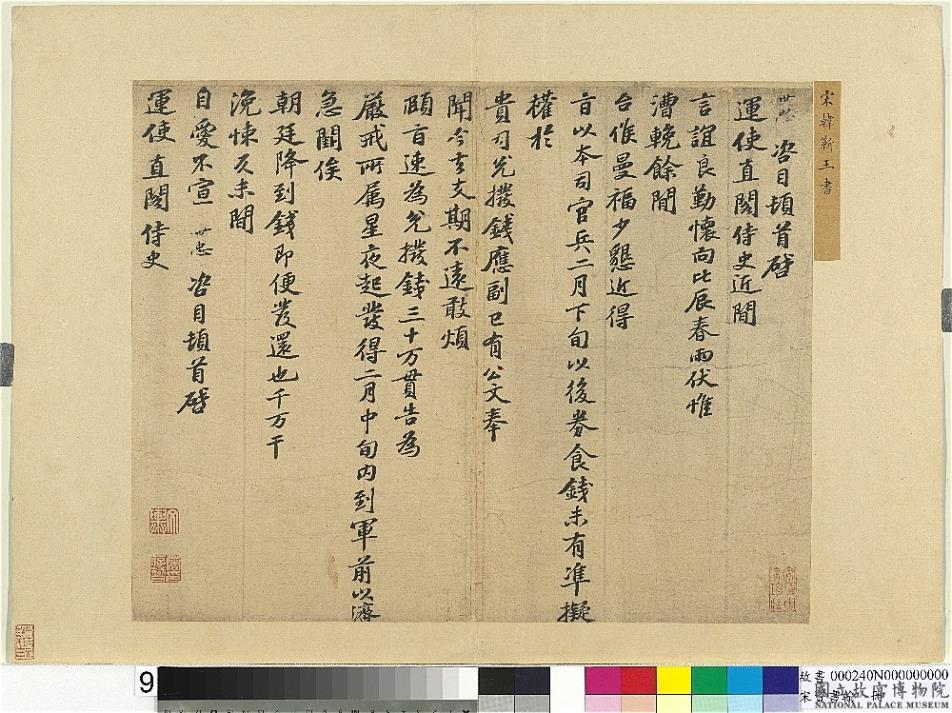 宋韓蘄王書
世忠 咨目頓首啓
運使直閣侍史近聞
言誼良勤懷向比辰春雨伏惟
漕輓餘閒
台候曼福少懇近得
旨以本司官兵二月下旬以後券食錢未有準擬
權於
貴司兌撥錢應副已有公文奉
聞今去支期不遠敢煩
頤旨速為兌撥錢三十万貫告為
嚴戒所属星夜起發得二月中旬內到軍前以濟
急闕俟
朝廷降到錢即便发還也千万千
浼悚久未閒
自愛不宣 世忠 咨目頓首啓
運使直閣侍史
9
故書 000240N000000000
國立故宮博物院
NATIONAL PALACE MUSEUM